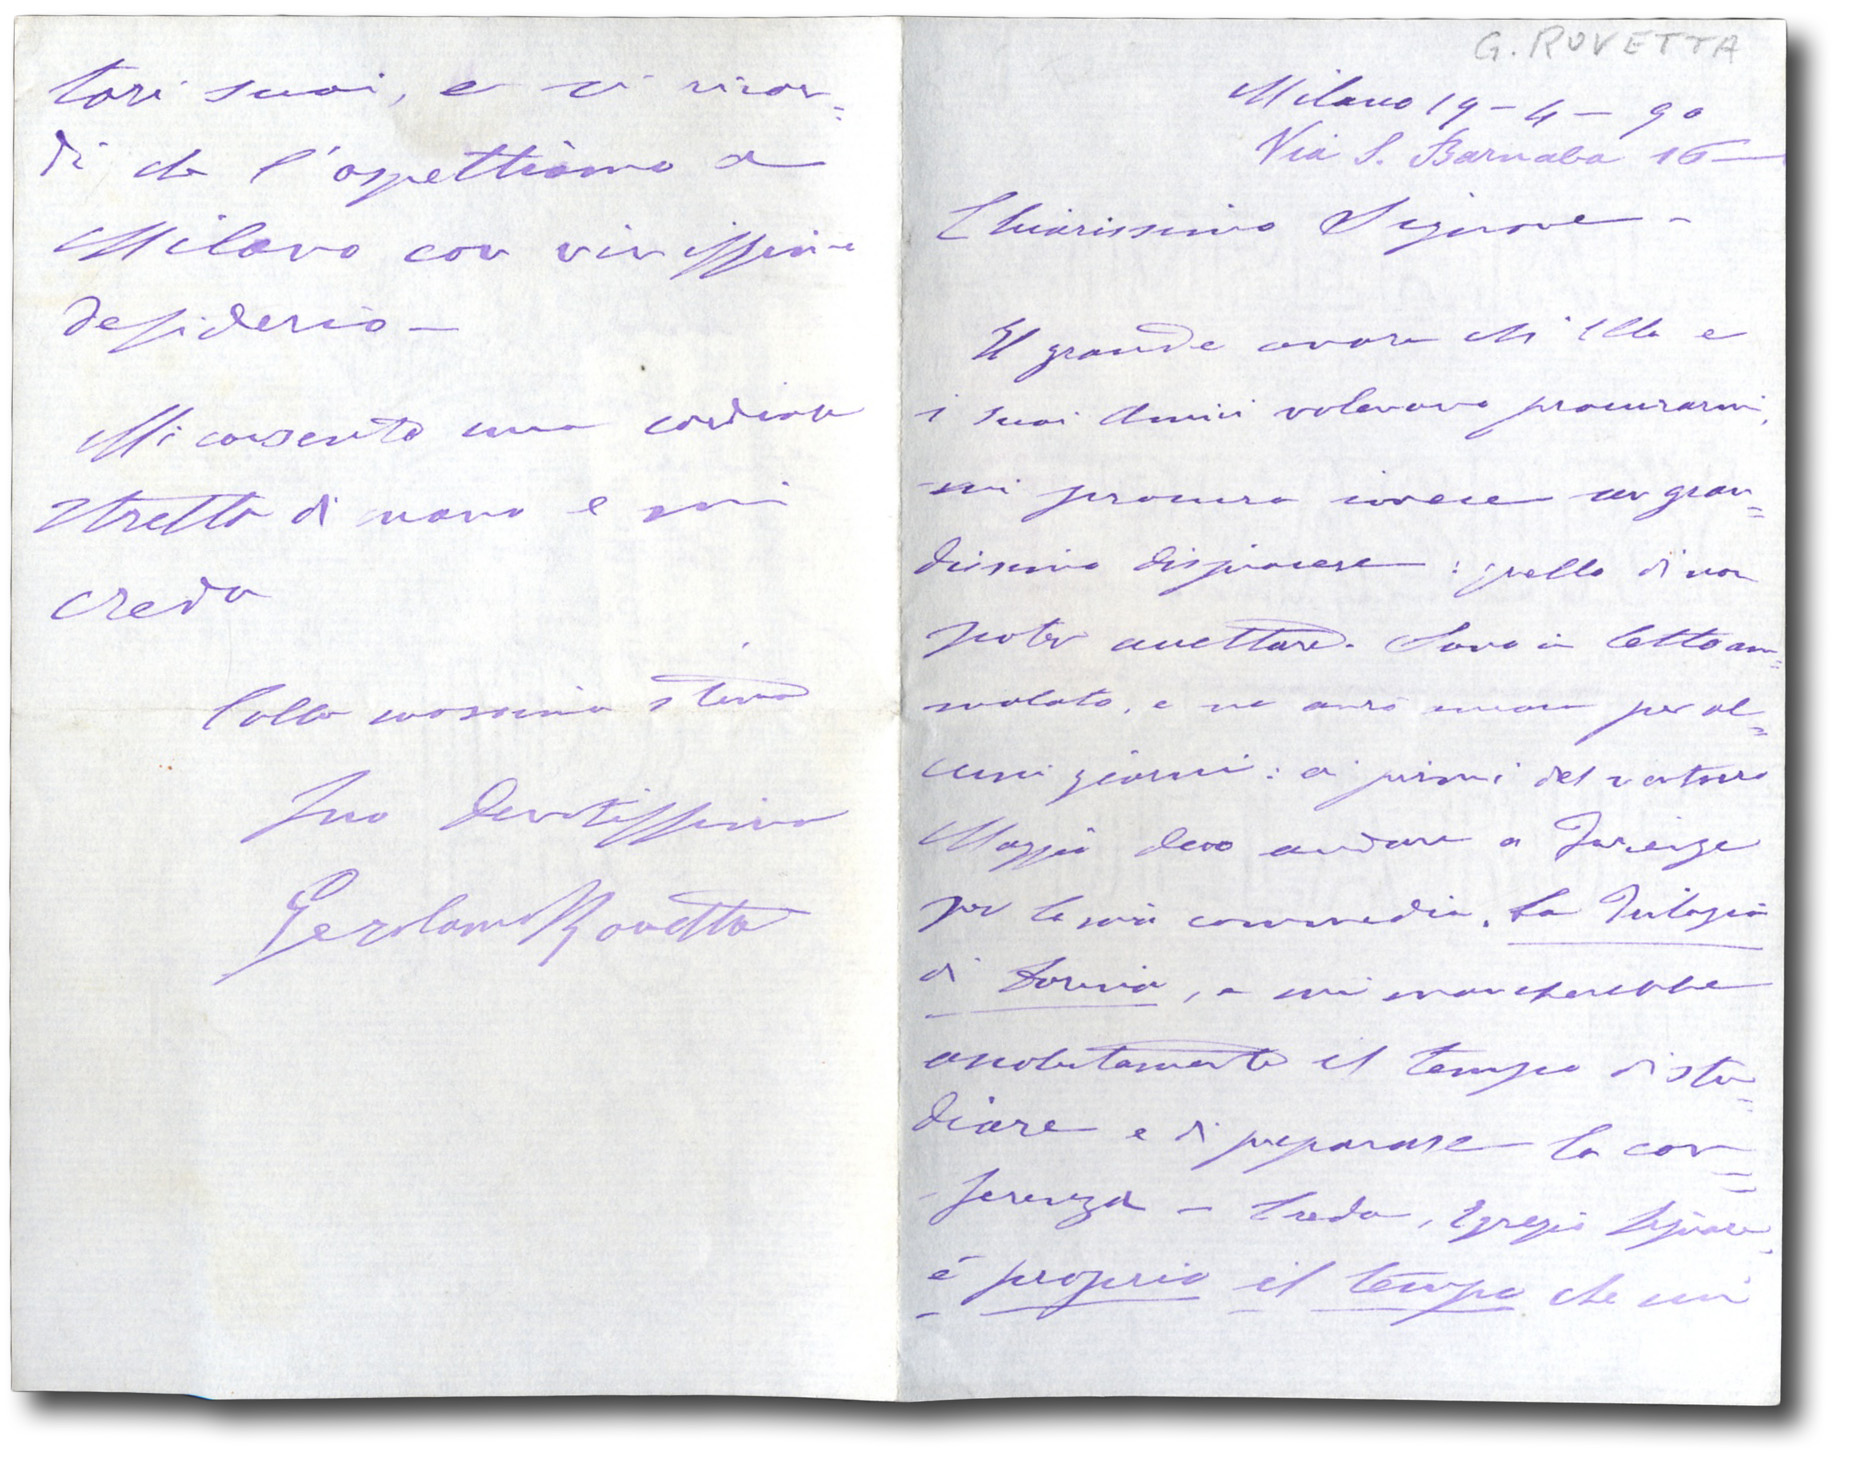 G. ROVETTA
Milano 19-4-90
Via S. Barnaba 16
Chiarissimo Signore -
Il grande onore ch'Ella e
i suoi Amici volevano procurarmi,
mi procura invece un gran=
dissimo dispiacere: quello di non
poter accettare. Sono in letto am=
malato, e ne avrò ancora per al=
cuni giorni: ai primi del venturo
Maggio devo andare a Firenze
per la mia commedia, La Trilogia
di Dorina, e mi mancherebbe
assolutamente il tempo di stu=
diare e di preparare la con=
ferenza - Creda, Egregio Signore,
è proprio il tempo che mi
tori suoi, e si ricor=
di che l'aspettiamo a
Milano con vivissimo
desiderio -
Mi consenta una cordiale
stretta di mano e mi
creda
Colla massima stima
Suo devotissimo
Gerolamo Rovetta